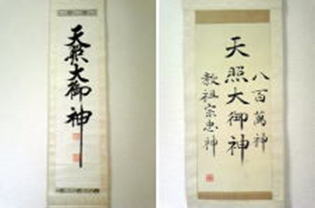 天照大御神
八百萬神
天照大御神
教祖宗忠神